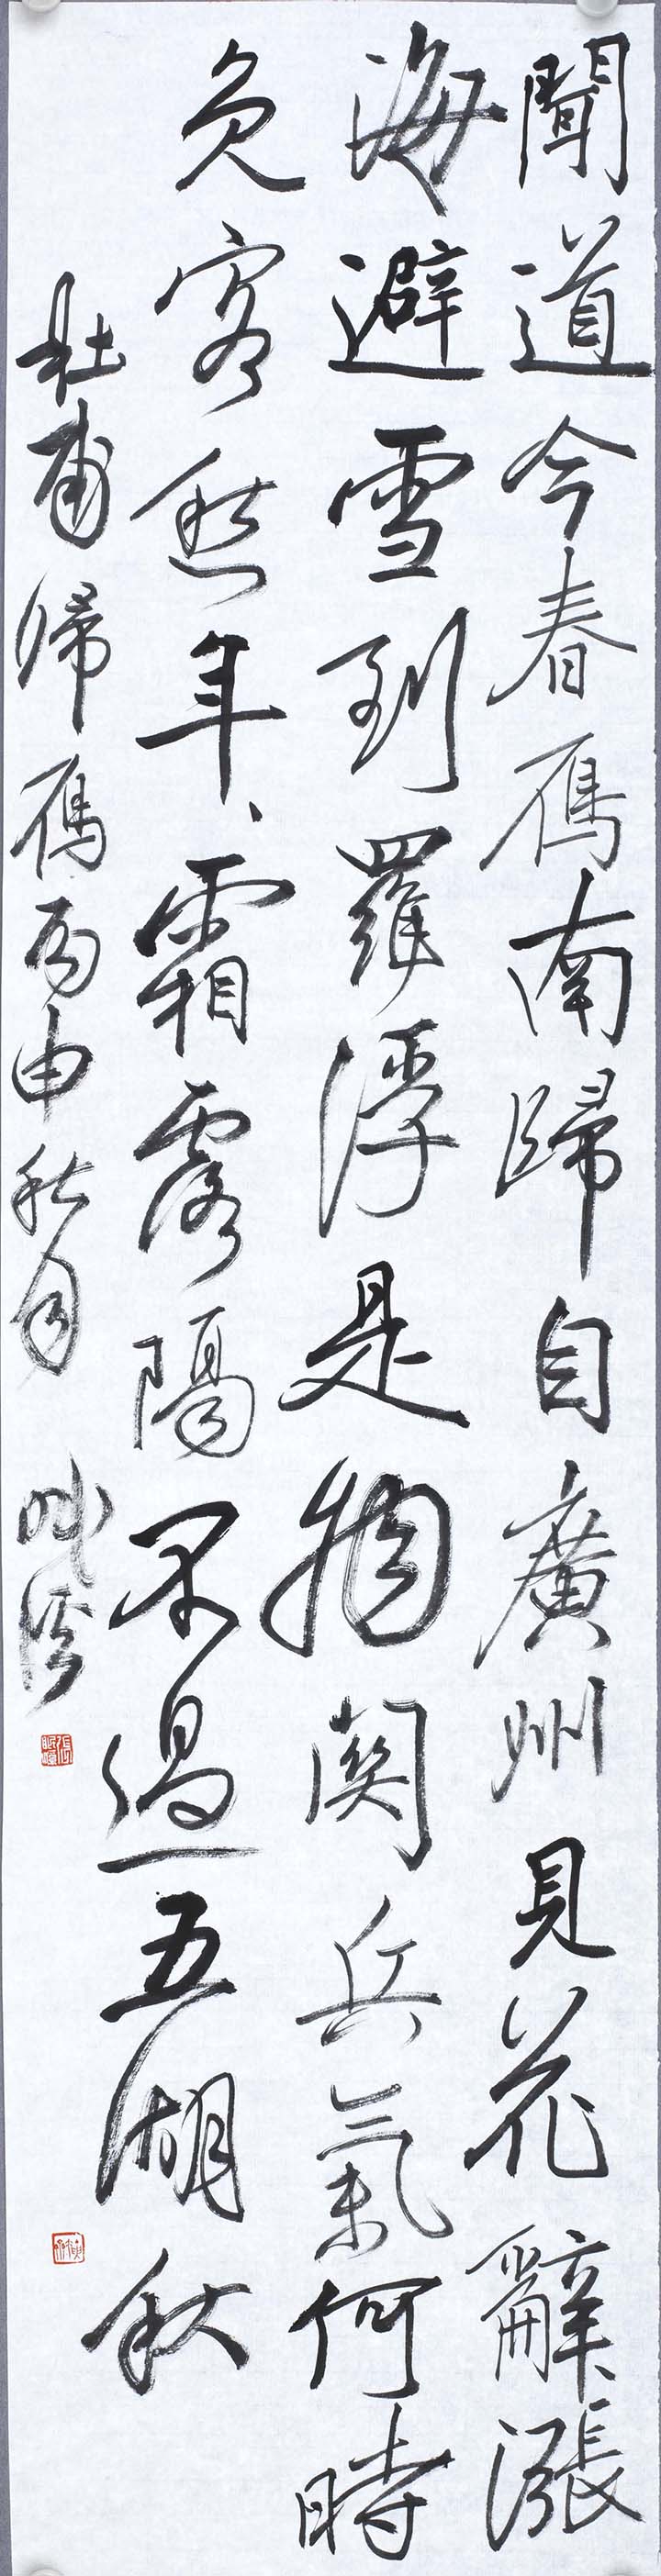 聞道今春鴈南歸自廣州見花辭漲
海避雪到羅浮是物関兵氣何時
免客愁年、霜露隔不過五湖秋
杜甫歸鴈丙申秋月